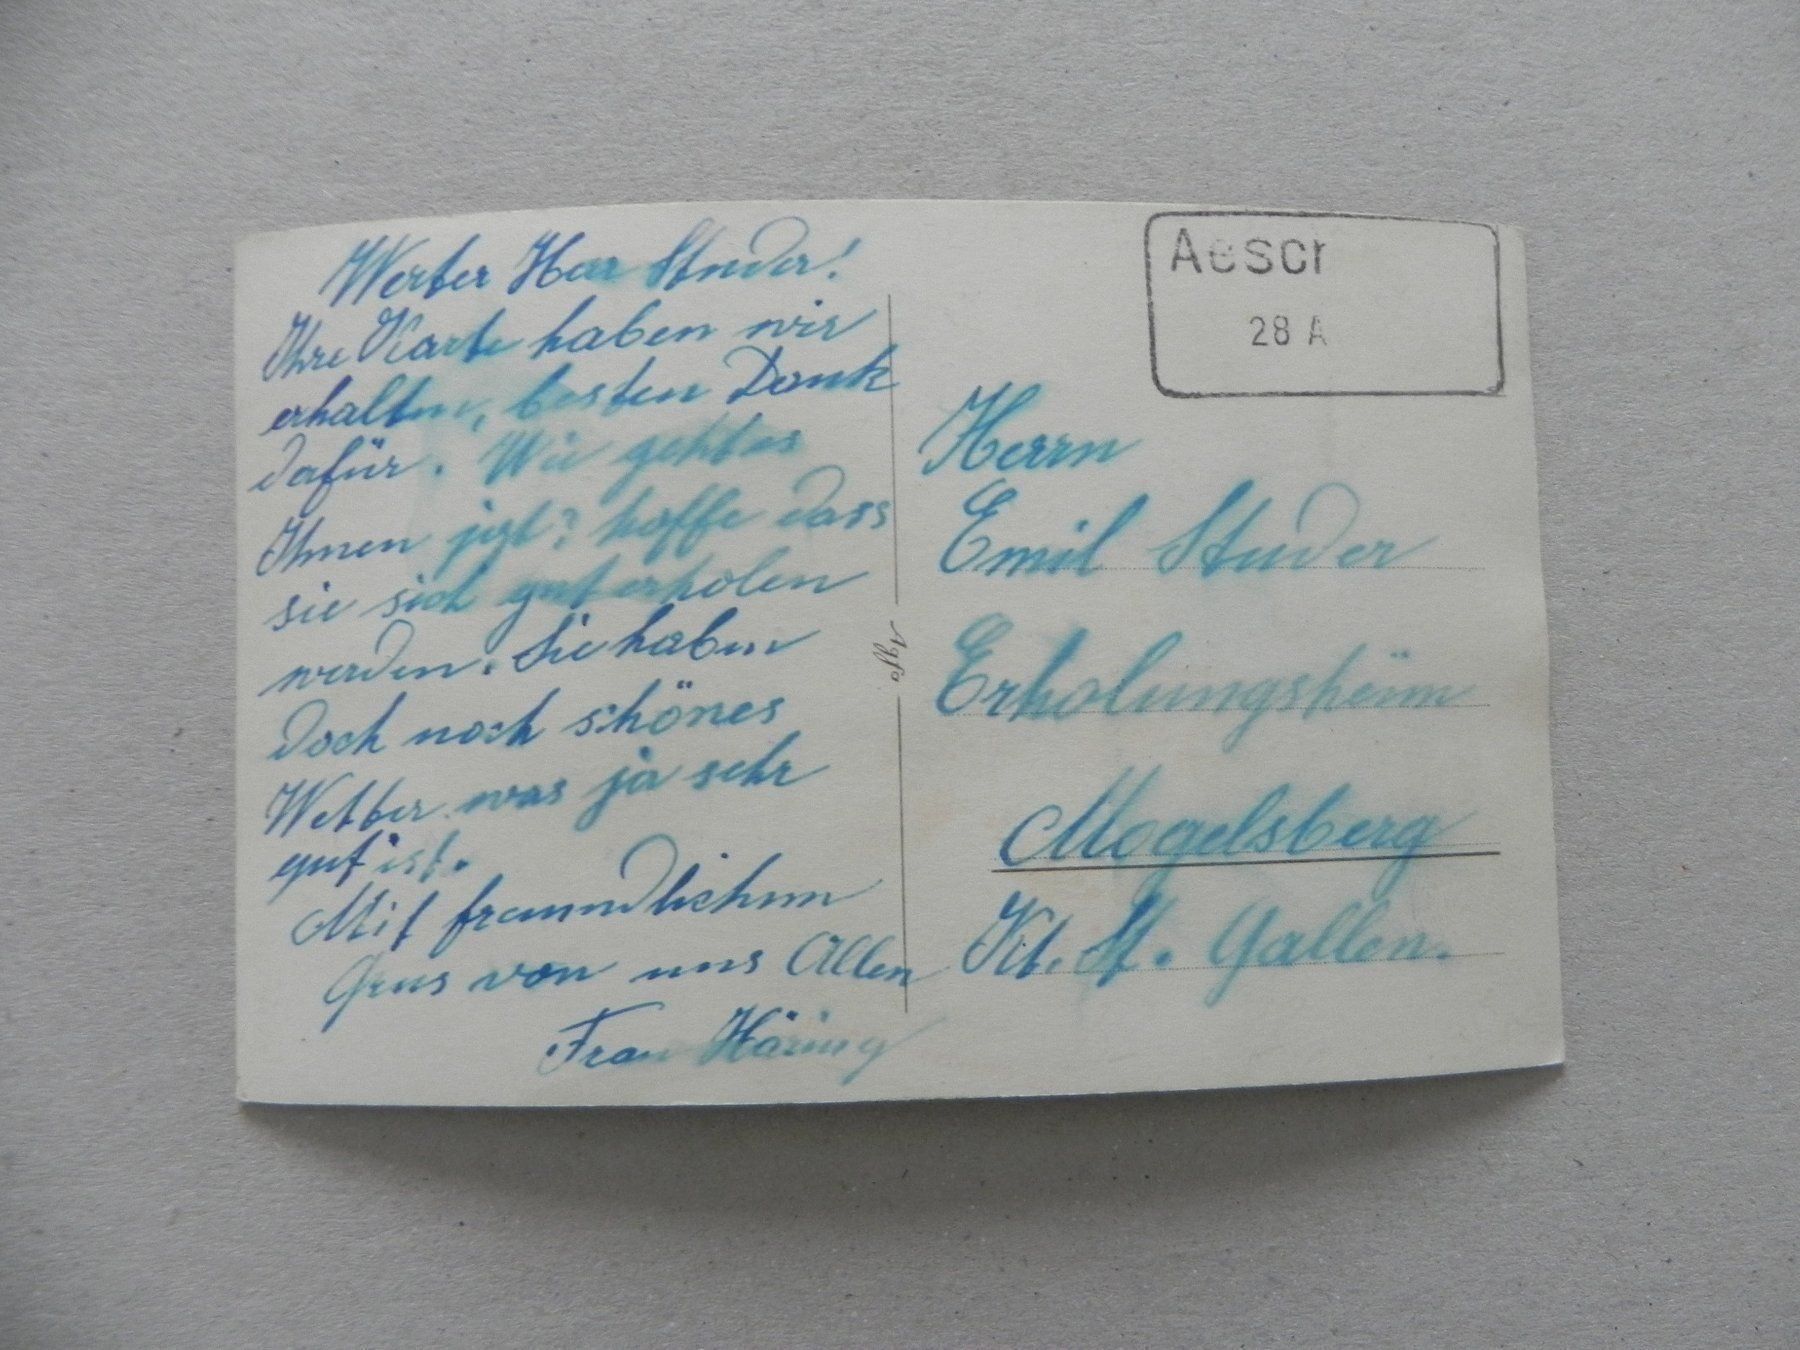 Werter Herr Studer!
Ihre Karte haben wir
erhalten, besten Dank
dafür. Wie geht es
Ihnen jezt? hoffe dass
sie sich gut erholen
werden. Sie haben
doch noch schönes
Wetter was ja sehr
gut ist.
Mit freundlichem
Grus von uns Allen
Frau Häring
Agfa
Aesch
28 A
Herrn
Emil Studer
Erholungsheim
Mogelsberg
Kt. St. Gallen.